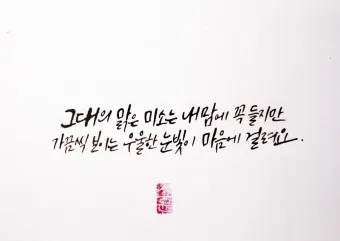 그대의 맑은 미소는 내맘에 꼭 들지만
가끔씩 보이는 우울한 눈빛이 마음에 걸려요.